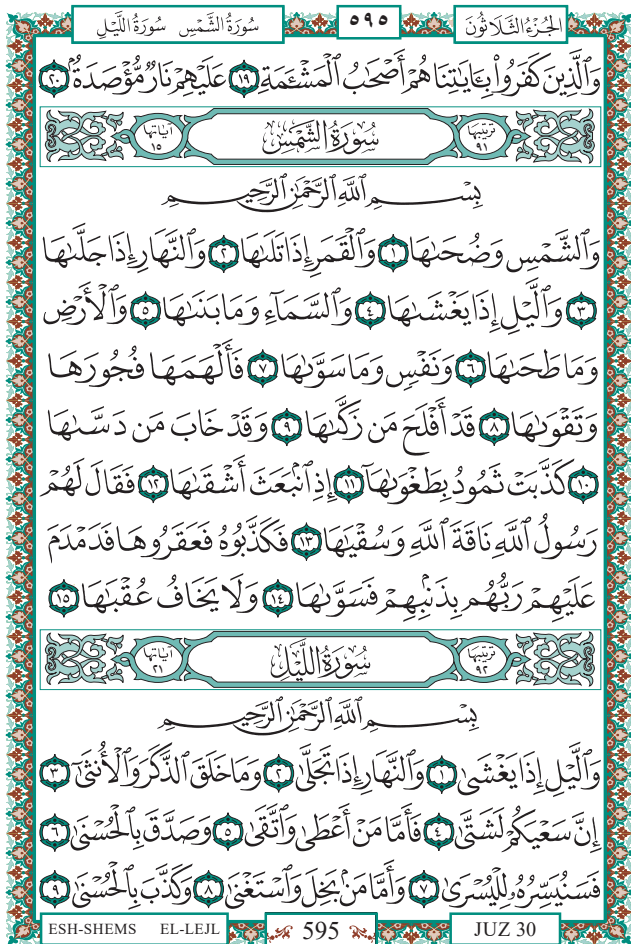 سُورَةُ الشَّمْسِ سُورَةُ اللَّيْلِ ٥٩٥ الجُزْءُ الثَّلَاثُونَ
وَٱلَّذِينَ كَفَرُوا۟ بِـَٔايَـٰتِنَا هُمْ أَصْحَـٰبُ ٱلْمَشْـَٔمَةِ ١٩ عَلَيْهِمْ نَارٌ مُّؤْصَدَةٌۢ ٢٠
ترتيبها ٩١ سُورَةُ الشَّمْسِ آياتها ١٥
بِسْمِ ٱللَّهِ ٱلرَّحْمَـٰنِ ٱلرَّحِيمِ
وَٱلشَّمْسِ وَضُحَىٰهَا ١ وَٱلْقَمَرِ إِذَا تَلَىٰهَا ٢ وَٱلنَّهَارِ إِذَا جَلَّىٰهَا
٣ وَٱلَّيْلِ إِذَا يَغْشَىٰهَا ٤ وَٱلسَّمَآءِ وَمَا بَنَىٰهَا ٥ وَٱلْأَرْضِ
وَمَا طَحَىٰهَا ٦ وَنَفْسٍ وَمَا سَوَّىٰهَا ٧ فَأَلْهَمَهَا فُجُورَهَا
وَتَقْوَىٰهَا ٨ قَدْ أَفْلَحَ مَن زَكَّىٰهَا ٩ وَقَدْ خَابَ مَن دَسَّىٰهَا
١٠ كَذَّبَتْ ثَمُودُ بِطَغْوَىٰهَآ ١١ إِذِ ٱنۢبَعَثَ أَشْقَىٰهَا ١٢ فَقَالَ لَهُمْ
رَسُولُ ٱللَّهِ نَاقَةَ ٱللَّهِ وَسُقْيَـٰهَا ١٣ فَكَذَّبُوهُ فَعَقَرُوهَا فَدَمْدَمَ
عَلَيْهِمْ رَبُّهُم بِذَنۢبِهِمْ فَسَوَّىٰهَا ١٤ وَلَا يَخَافُ عُقْبَـٰهَا ١٥
ترتيبها ٩٢ سُورَةُ اللَّيْلِ آياتها ٢١
بِسْمِ ٱللَّهِ ٱلرَّحْمَـٰنِ ٱلرَّحِيمِ
وَٱلَّيْلِ إِذَا يَغْشَىٰ ١ وَٱلنَّهَارِ إِذَا تَجَلَّىٰ ٢ وَمَا خَلَقَ ٱلذَّكَرَ وَٱلْأُنثَىٰٓ ٣
إِنَّ سَعْيَكُمْ لَشَتَّىٰ ٤ فَأَمَّا مَنْ أَعْطَىٰ وَٱتَّقَىٰ ٥ وَصَدَّقَ بِٱلْحُسْنَىٰ ٦
فَسَنُيَسِّرُهُۥ لِلْيُسْرَىٰ ٧ وَأَمَّا مَنۢ بَخِلَ وَٱسْتَغْنَىٰ ٨ وَكَذَّبَ بِٱلْحُسْنَىٰ ٩
ESH-SHEMS EL-LEJL 595 JUZ 30